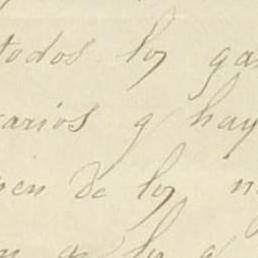 todos los ga
arios y hay
en de los n